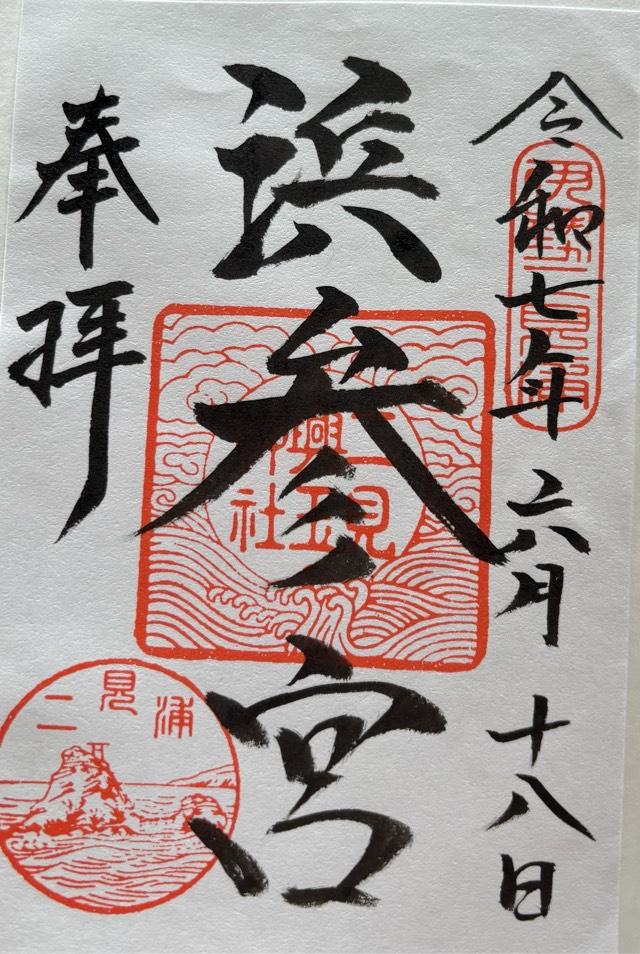 令和七年六月十八日
浜参宮
奉拝
二見
興玉
神社
二見浦